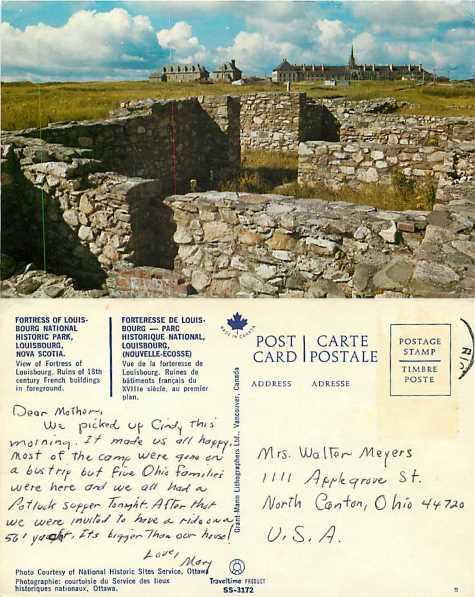 FORTRESS OF LOUIS-
BOURG NATIONAL
HISTORIC PARK,
LOUISBOURG,
NOVA SCOTIA.
View of Fortress of
Louisbourg. Ruins of 18th
century French buildings
in foreground.
FORTERESSE DE LOUIS-
BOURG — PARC
HISTORIQUE NATIONAL,
LOUISBOURG,
(NOUVELLE-ECOSSE)
Vue de la forteresse de
Louisbourg. Ruines de
bâtiments français du
XVIIIe siècle, au premier
plan.
MADE IN CANADA
POST CARD
CARTE POSTALE
ADDRESS
ADRESSE
POSTAGE
STAMP
TIMBRE
POSTE
Dear Mother,
We picked up Cindy this
morning. It made us all happy.
Most of the camp were gone on
a bus trip but five Ohio families
were here and we all had a
Potluck supper Tonight. After that
we were invited to have a ride on a
56' yacht. Its bigger Than our house!
Love,
Mary
Grant-Mann Lithographers Ltd., Vancouver, Canada
Mrs. Walter Meyers
1111 Applegrove St.
North Canton, Ohio 44720
U.S.A.
Photo Courtesy of National Historic Sites Service, Ottawa
Photographie: courtoisie du Service des lieux
historiques nationaux, Ottawa.
Traveltime PRODUCT
SS-3172